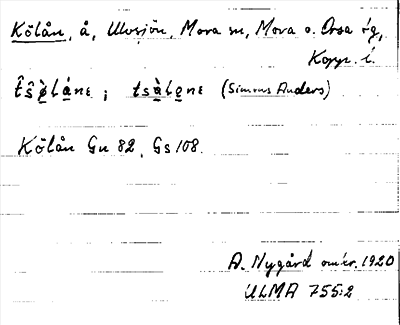 Kölån, å, Ulvsjön, Mora sn, Mora o. Orsa tg,
Kopp. l.
t̂ŝø̀lánɛ ; tsàlo̱nɛ (Simons Anders)
Kölån Gn 82, Gs 108.
A. Nygård omkr. 1920
ULMA 755:2